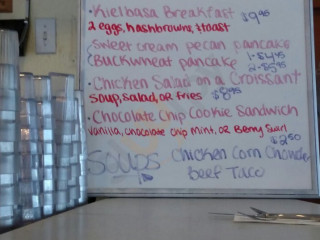 • Kielbasa Breakfast $9.95
2 eggs, hashbrowns, & toast
Sweet cream pecan pancake
(Buckwheat pancake 1-$4.75
2-$5.75
• Chicken Salad on a Croissant
soup, salad, or fries $8.95
• Chocolate Chip Cookie Sandwich
vanilla, chocolate chip mint, or Berry Swirl
$2.50
Soups Chicken Corn Chowder
Beef Taco